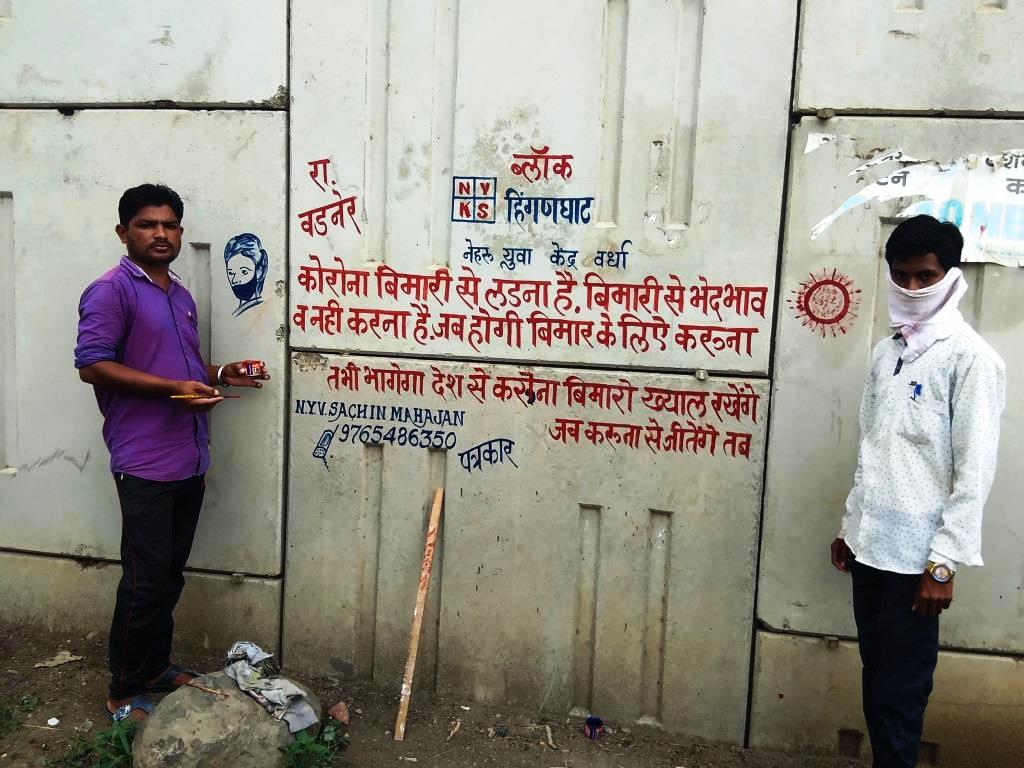 रा.
वडनेर
ब्लॉक
NY
KS
हिंगणघाट
नेहरू युवा केंद्र वर्धा
कोरोना बिमारी से लडना है. बिमारी से भेदभाव
व नही करना है. जब होगी बिमार के लिऐ करूना
तभी भागेगा देश से करोना बिमारो ख्याल रखेंगे
N.Y.V. SACHIN MAHAJAN
जब करूना से जीतेंगे तब
9765486350
पत्रकार